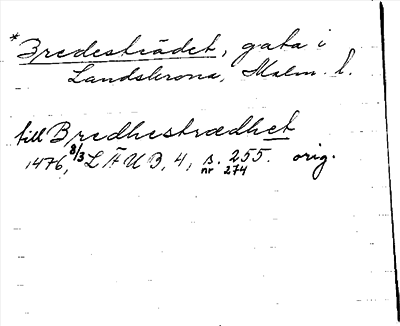 *Bredesträdet, gata i
Landskrona, Malm. l.
till Bredhestrædhet
1476, 8/3 LÄUB, 4, s. 255. orig.
nr 274